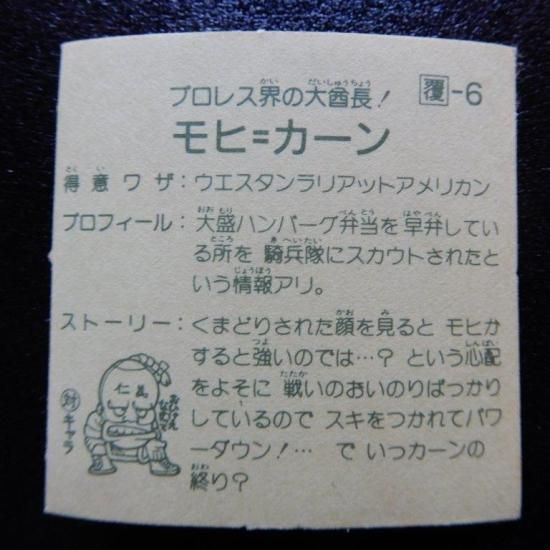 プロレス界の大酋長！
覆-6
モヒ=カーン
得意ワザ：ウエスタンラリアットアメリカン
プロフィール：大盛ハンバーグ弁当を早弁してい
る所を 騎兵隊にスカウトされたと
いう情報アリ。
ストーリー：くまどりされた顔を見ると モヒか
すると強いのでは…？ という心配
をよそに 戦いのおいのりばっかり
しているので スキをつかれてパワ
ーダウン！… で いっカーンの
終り？
対キャラ
仁義